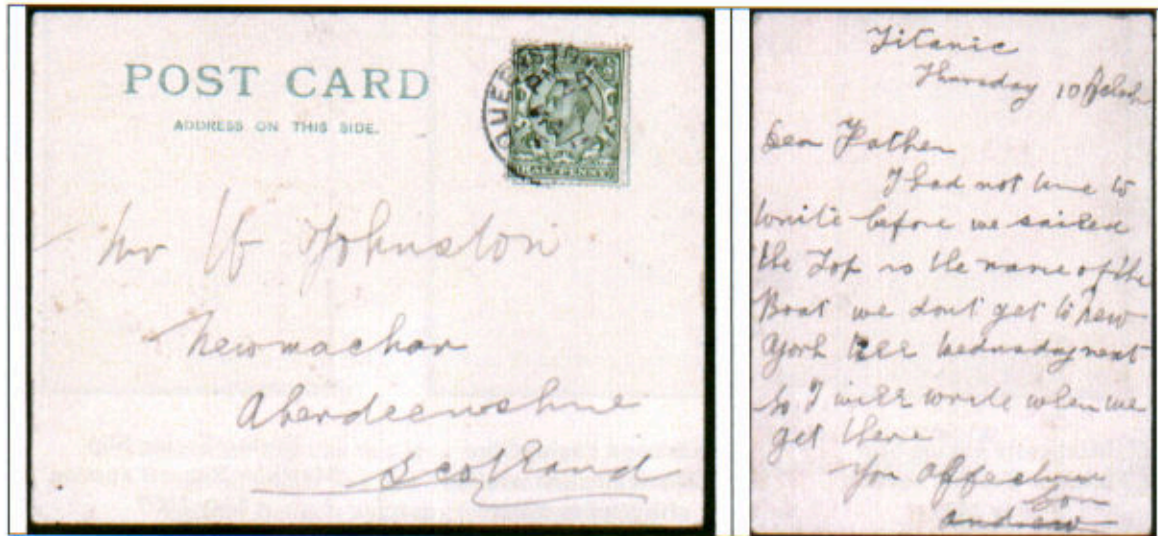 POST CARD
ADDRESS ON THIS SIDE.
HALFPENNY
Mr W Johnston
Newmachar
Aberdeenshire
Scotland
Titanic
Thursday 10
Dear Father
I had not time to
write before we sailed
the Top is the name of the
Boat we dont get to New
York till Wednesday next
So I will write when we
get there
Son
Andrew